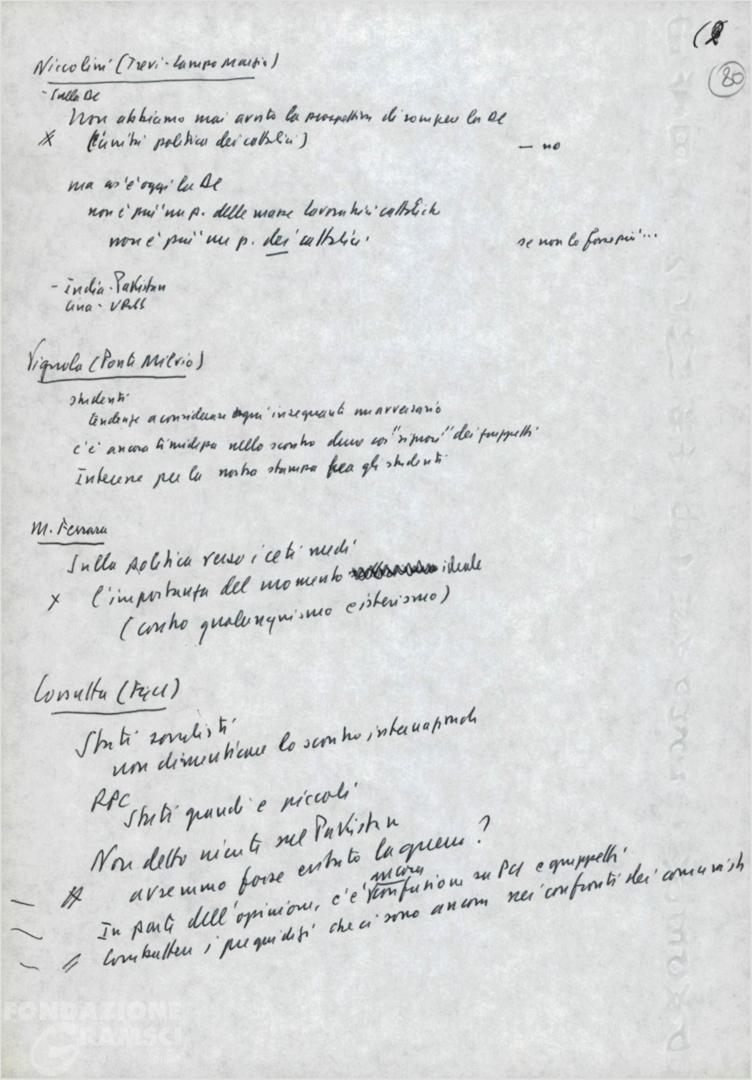 (2
80
Niccolini (Trevi-Campo Marzio)
- Sulla DC
Non abbiamo mai avuto la prospettiva di romper la DC
(l'unità politica dei cattolici)
- no
ma cos'è oggi la DC
non è più un p. delle masse lavoratrici cattoliche
non è più un p. dei cattolici.
se non lo fosse più...
- India-Pakistan
Cina-URSS
Vignola (Ponte Milvio)
studenti
tendenze a considerare ogni insegnante un avversario
c'è ancora timidezza nello scontro duro coi "signori" dei gruppetti
Interesse per la nostra stampa fra gli studenti
M. Ferrara
Sulla politica verso i ceti medi
x l'importanza del momento ideale
(contro qualunquismo e isterismo)
Consulta (FGCI)
Stati socialisti
non dimenticare lo scontro internazionale
RPC
Stati grandi e piccoli
Non detto niente sul Pakistan
avremmo forse evitato la guerra?
In parte dell'opinione, c'è ancora confusione su PCI e gruppetti
Combattere i pregiudizi che ci sono ancora nei confronti dei comunisti
FONDAZIONE
GRAMSCI